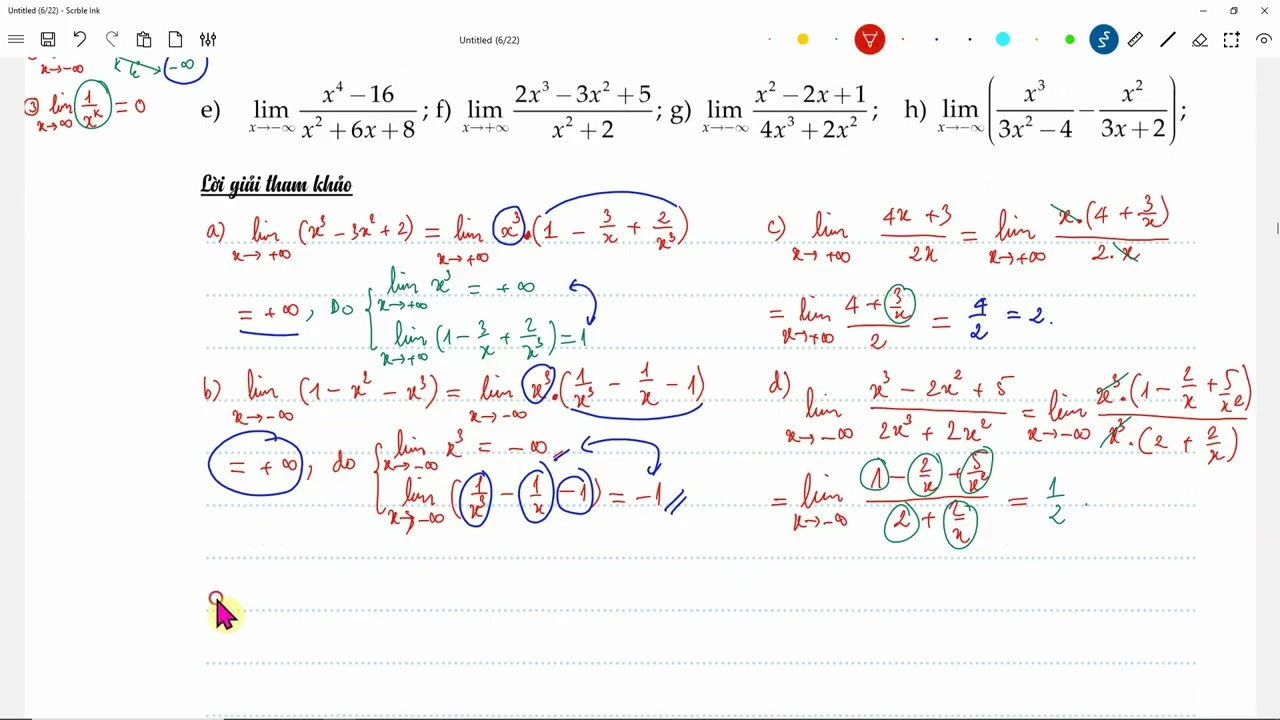 Untitled (6/22) - Scrble Ink
Untitled (6/22)
x→-∞ -∞
③ lim x→∞ 1/x^k = 0
e) lim x→-∞ (x^4 - 16)/(x^2 + 6x + 8); f) lim x→+∞ (2x^3 - 3x^2 + 5)/(x^2 + 2); g) lim x→-∞ (x^2 - 2x + 1)/(4x^3 + 2x^2); h) lim x→-∞ (x^3/(3x^2 - 4) - x^2/(3x + 2));
Lời giải tham khảo
a) lim x→+∞ (x^3 - 3x^2 + 2) = lim x→+∞ x^3.(1 - 3/x + 2/x^3)
= +∞, Do { lim x→+∞ x^3 = +∞
lim x→+∞ (1 - 3/x + 2/x^3) = 1
b) lim x→-∞ (1 - x^2 - x^3) = lim x→-∞ x^3.(1/x^3 - 1/x - 1)
= +∞, do { lim x→-∞ x^3 = -∞
lim x→-∞ (1/x^3 - 1/x - 1) = -1
c) lim x→+∞ (4x + 3)/(2x) = lim x→+∞ (x.(4 + 3/x))/(2.x)
= lim x→+∞ (4 + 3/x)/2 = 4/2 = 2.
d) lim x→-∞ (x^3 - 2x^2 + 5)/(2x^3 + 2x^2) = lim x→-∞ (x^3.(1 - 2/x + 5/x^2))/(x^3.(2 + 2/x))
= lim x→-∞ (1 - 2/x + 5/x^2)/(2 + 2/x) = 1/2.